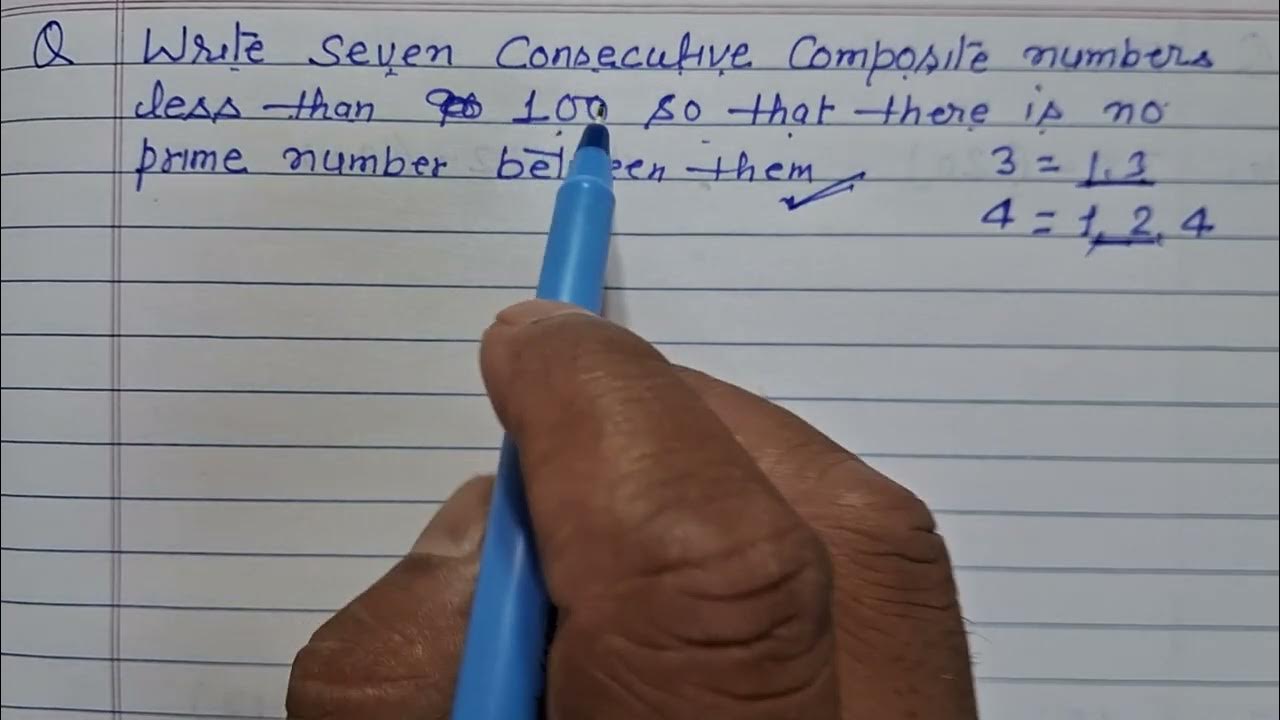 Q Write Seven Consecutive Composite numbers
less than 100 so that there is no
prime number between them
3 = 1, 3
4 = 1, 2, 4